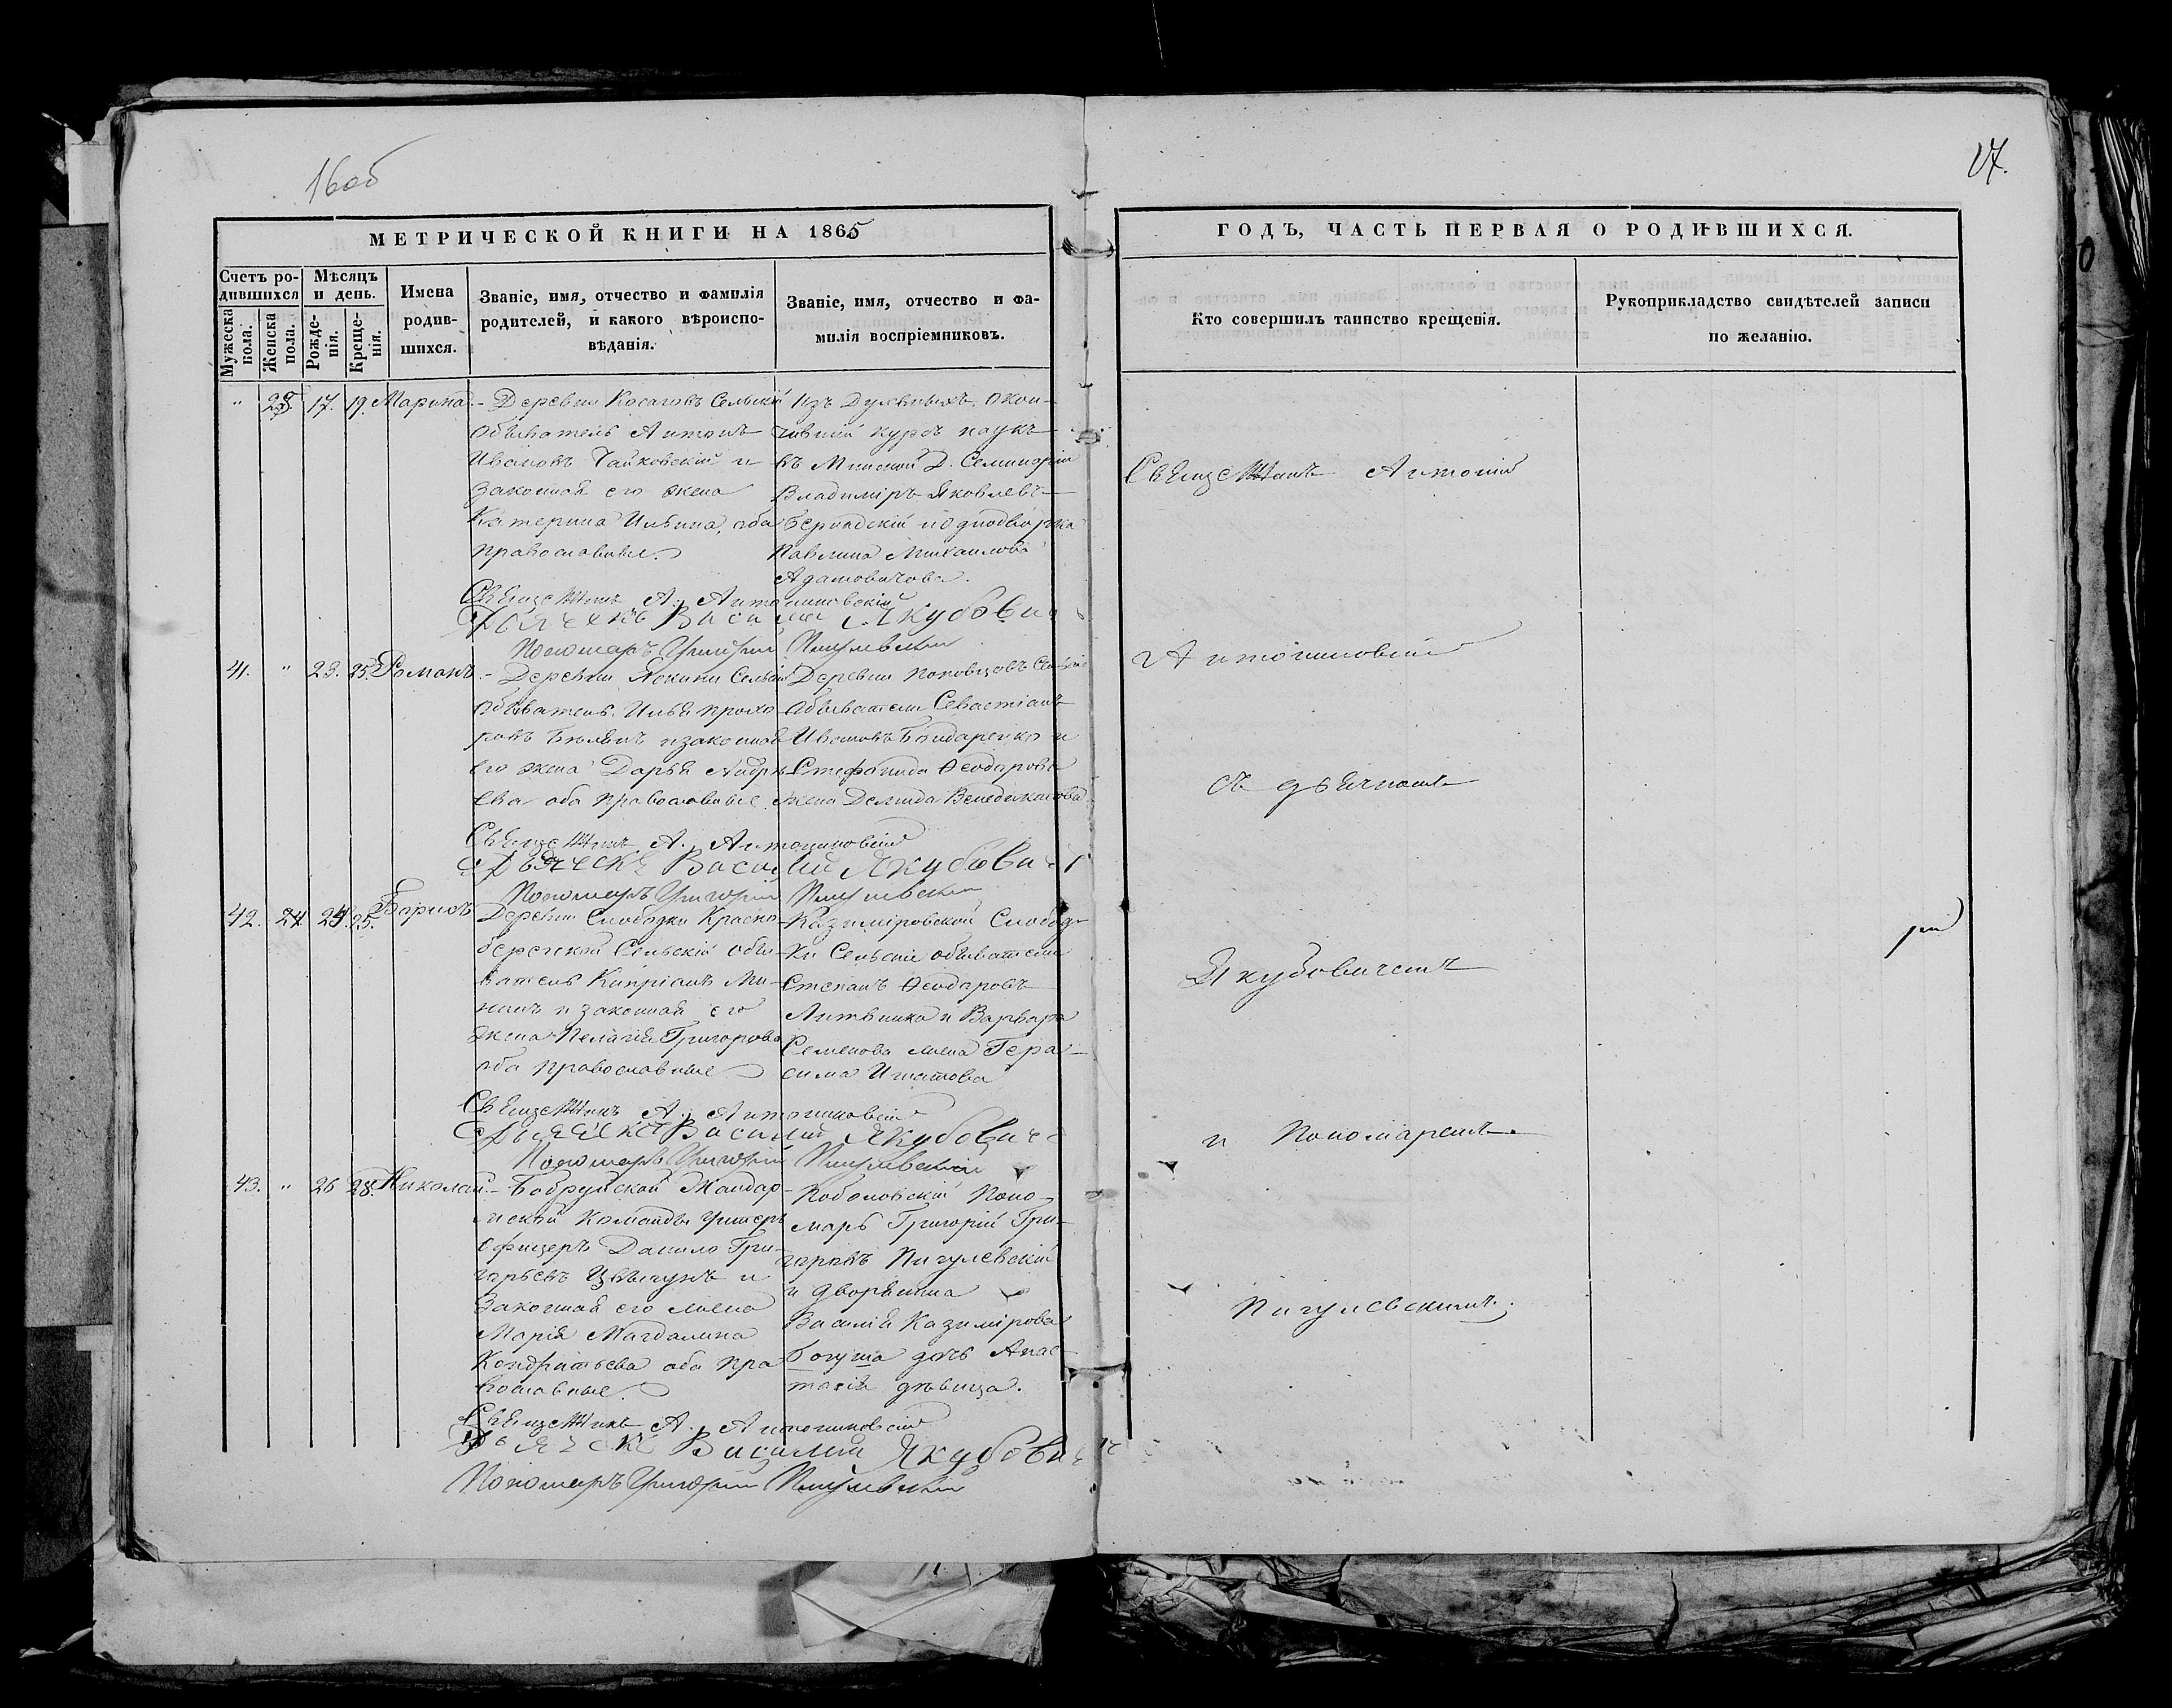 16об
17.
МЕТРИЧЕСКОЙ КНИГИ НА 1865
ГОДЪ, ЧАСТЬ ПЕРВАЯ О РОДИВШИХСЯ.
Счетъ родившихся
Мужеска пола.
Женска пола.
Мѣсяцъ и день.
Рожденія.
Крещенія.
Имена родившихся.
Званіе, имя, отчество и фамилія родителей, и какого вѣроисповѣданія.
Званіе, имя, отчество и фамилія воспріемниковъ.
Кто совершилъ таинство крещенія.
Рукоприкладство свидѣтелей записи по желанію.
" 17. 19. Марина
Деревни Косаговъ Сельскій
обыватель Антонъ
Ивановъ Чайковскій и
законная его жена
Катерина Ильина, оба
православные.
Изъ Духовныхъ, окон-
чившій курсъ наукъ
въ Минской Д. Семинаріи
Владиміръ Яковлевъ
Бернадскій и однодворка
Павлина Михаилова
Адамовичова.
Священникъ А. Антониновскій
Дьячекъ Василій Якубовичъ
Пономарь Григорій Пигулевскій
41. " 23. 25. Романъ
Деревни Сельскій
обыватель Илья Прохо-
ровъ и законная
его жена Дарья Андре-
ева оба православные.
Деревни Сельскіе
обыватели Севастіанъ
Ивановъ Бондаренко и
Стефанида Ѳеодорова
жена Демида Венедиктова
Священникъ А. Антониновскій
Дьячекъ Василій Якубовичъ
Пономарь Григорій Пигулевскій
42. 24 25. Борисъ
Деревни Слободки Красно-
берегской Сельскій обы-
ватель Кипріанъ Ми-
и законная его
жена Пелагія Григорьева
оба православные
Казиміровской Слобод-
ки Сельскіе обыватели
Степанъ Ѳеодоровъ
Литвинко и Варвара
Семенова жена Гера-
сима Игнатова
Священникъ А. Антониновскій
Дьячекъ Василій Якубовичъ
Пономарь Григорій Пигулевскій
43. " 26 28. Николай
Бобруйской Жандар-
мской Команды Унтеръ
офицеръ Данило Гри-
горьевъ и
законная его жена
Марія Магдалина
Кондратьева оба пра-
вославные.
Поно-
марь Григорій Гри-
горовъ Пигулевскій
и дворянина
Василія Казимірова
Богуша дочь Анас-
тасія дѣвица.
Священникъ А. Антониновскій
Дьячекъ Василій Якубовичъ
Пономарь Григорій Пигулевскій
Священникъ Антоній
Антониновскій
съ дьячкомъ
Якубовичемъ
и Пономаремъ
Пигулевскимъ.